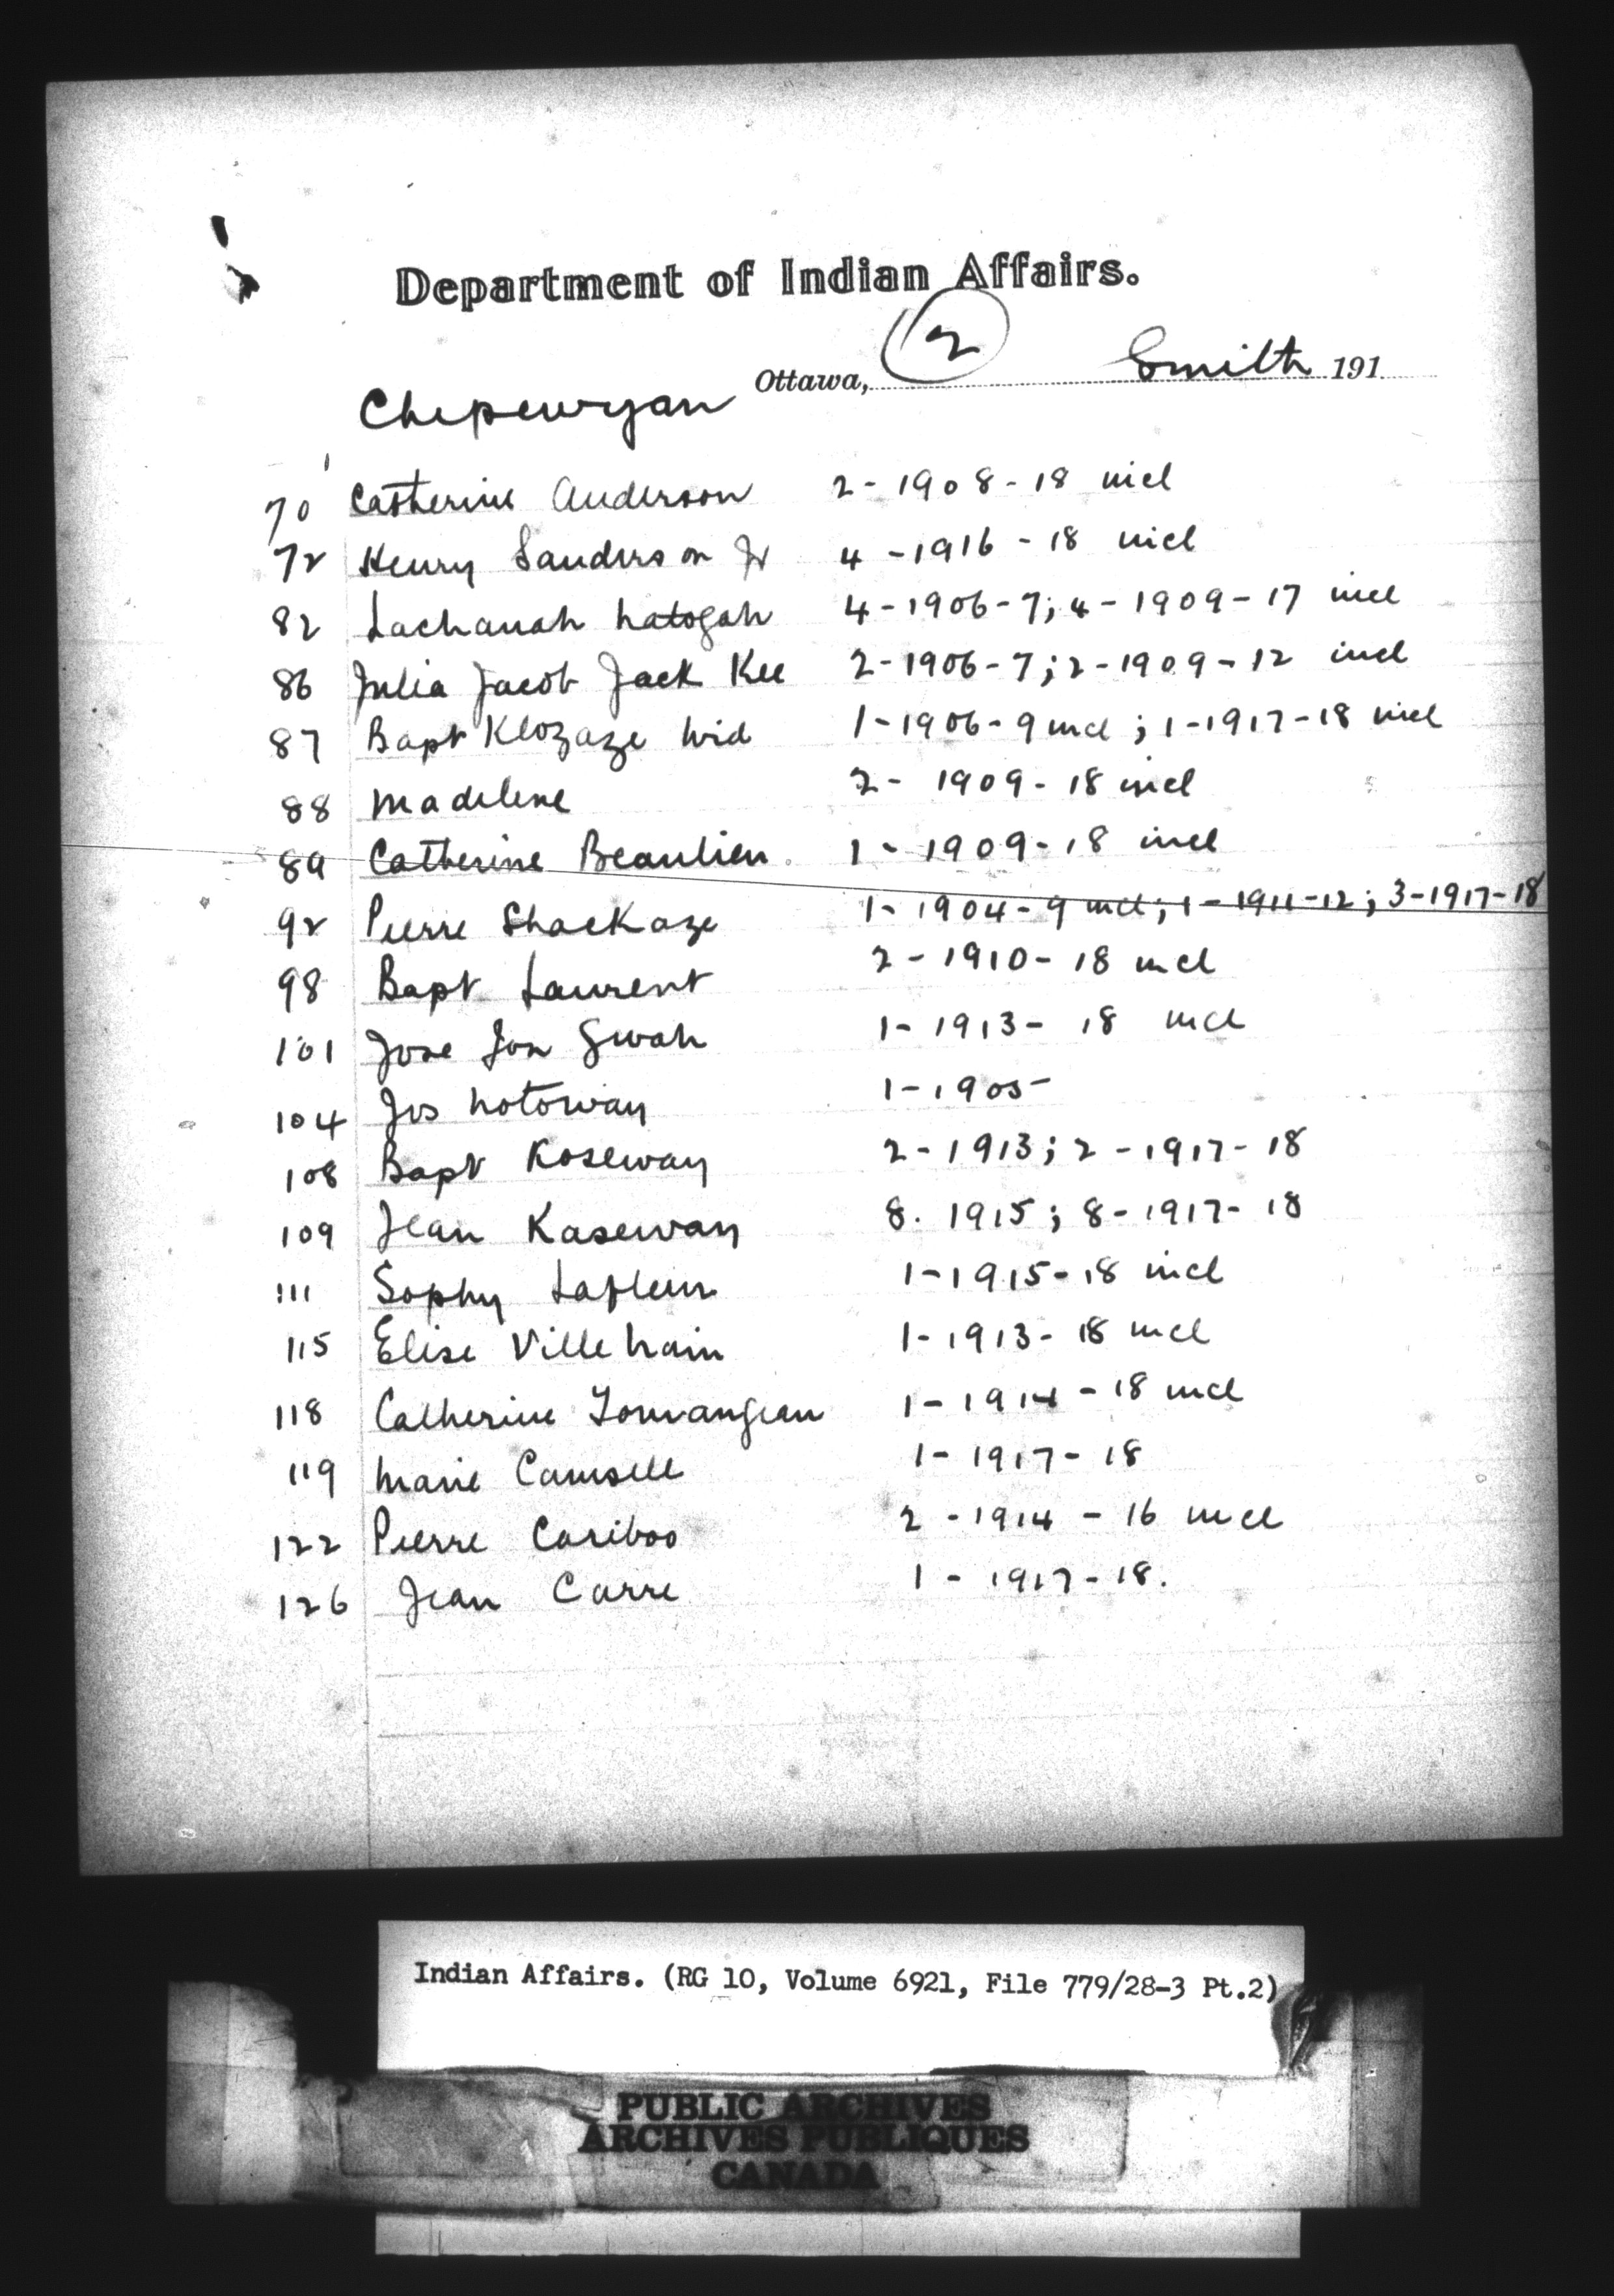 Department of Indian Affairs.
2
Ottawa, Smith 191
Chepewyan
70 Catherine Anderson 2-1908-18 incl
72 Henry Sanderson Jr 4-1916-18 incl
82 Lachanah Natogah 4-1906-7; 4-1909-17 incl
86 Julia Jacob Jack Kee 2-1906-7; 2-1909-12 incl
87 Bapt Klozaze Wid 1-1906-9 incl; 1-1917-18 incl
88 Madelene 2-1909-18 incl
89 Catherine Beaulieu 1-1909-18 incl
92 Pierre Shackaze 1-1904-9 incl; 1-1911-12; 3-1917-18
98 Bapt Laurent 2-1910-18 incl
101 Jose Jon Gwah 1-1913-18 incl
104 Jos Notoway 1-1905
108 Bapt Koseway 2-1913; 2-1917-18
109 Jean Kaseway 8. 1915; 8-1917-18
111 Sophy Lafleur 1-1915-18 incl
115 Elise Ville Nain 1-1913-18 incl
118 Catherine 1-1914-18 incl
119 Marie Camsell 1-1917-18
122 Pierre Cariboo 2-1914-16 incl
126 Jean Carre 1-1917-18.
Indian Affairs. (RG 10, Volume 6921, File 779/28-3 Pt.2)
PUBLIC ARCHIVES
ARCHIVES PUBLIQUES
CANADA